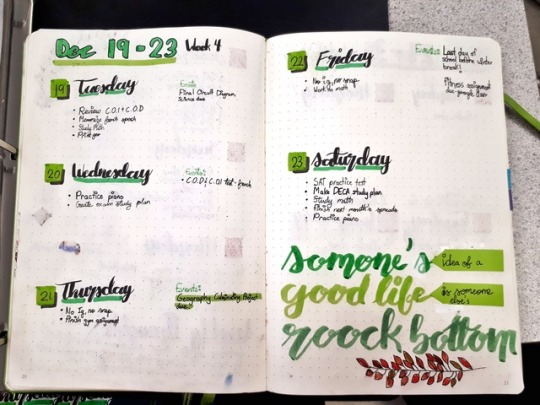 Dec 19 - 23 Week 4
19 Tuesday
• Review C.O.I + C.O.D
• Memorize french speech
• Study Math
Events:
Final Circuit Diagram,
Science due
20 Wednesday
• Practice piano
• exam study plan
Events:
• C.O.D + C.O.I test - french
21 Thursday
• No Ig, no snap
• Finish gym assignment
Events:
Geography Culminating Project
22 Friday
• No ig, no snap
• Work on math
Events: Last day of
school before winter
break!
Fitness assignment
23 Saturday
• SAT practice test
• Make DECA study plan
• Study math
• Finish next month's spreads
• Practice piano
somone's idea of a
good life is someone
else's
roock bottom